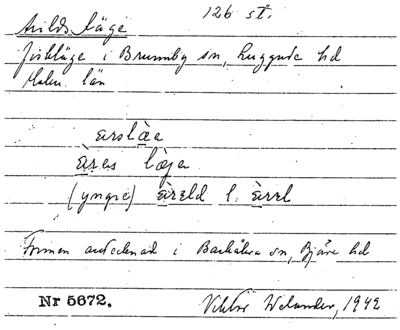 126 st.
Arilds läge
fiskläge i Brunnby sn, Luggude hd
Malm. län
ærslæa
æres læja
(yngre) æreld l. ærel
Formen antecknad i Barkåkra sn, Bjäre hd
Nr 5672.
Viktor Welander, 1942